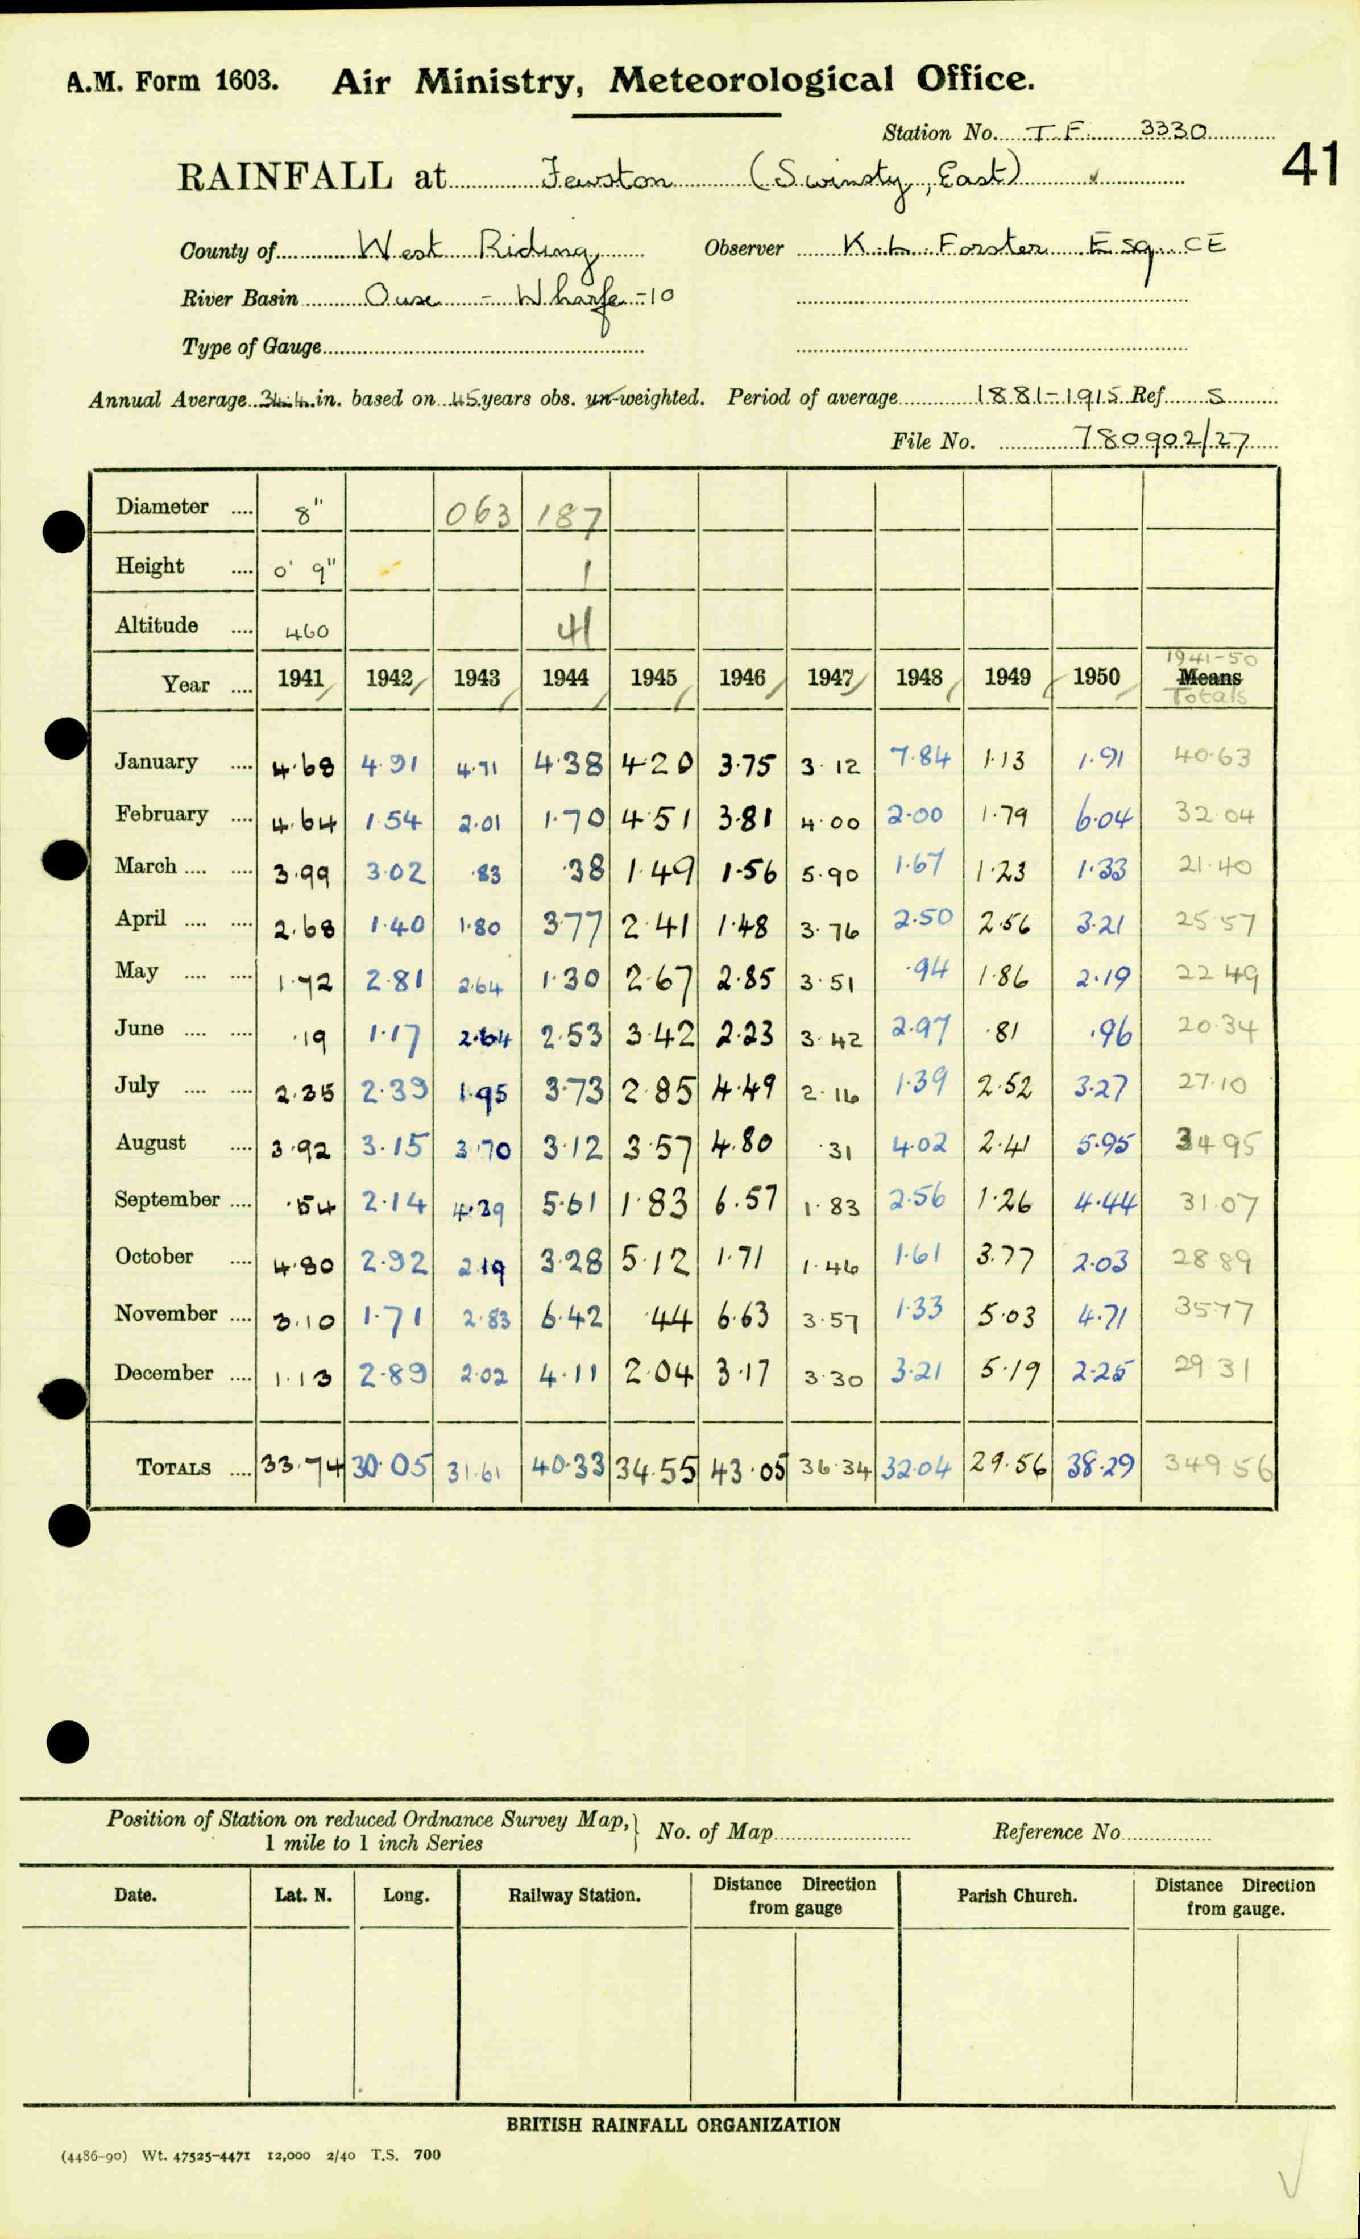 A.M. Form 1603. Air Ministry, Meteorological Office.
Station No. T.F. 3330
41
RAINFALL at Fewston (Swinsty, East)
County of West Riding Observer K. L. Forster Esq. CE
River Basin Ouse - Wharfe - 10
Type of Gauge
Annual Average 34.4 in. based on 45 years obs. un-weighted. Period of average 1881-1915 Ref. S
File No. 780902/27
Diameter .... 8" 063 187
Height .... 0' 9" 1
Altitude .... 460 41
1941-50
Year .... 1941 1942 1943 1944 1945 1946 1947 1948 1949 1950 Means
Totals
January .... 4.68 4.91 4.71 4.38 4.20 3.75 3.12 7.84 1.13 1.91 40.63
February .... 4.64 1.54 2.01 1.70 4.51 3.81 4.00 2.00 1.79 6.04 32.04
March .... .... 3.99 3.02 .83 .38 1.49 1.56 5.90 1.67 1.23 1.33 21.40
April .... .... 2.68 1.40 1.80 3.77 2.41 1.48 3.76 2.50 2.56 3.21 25.57
May .... .... 1.72 2.81 2.64 1.30 2.67 2.85 3.51 .94 1.86 2.19 22.49
June .... .... .19 1.17 2.64 2.53 3.42 2.23 3.42 2.97 .81 .96 20.34
July .... .... 2.35 2.39 1.95 3.73 2.85 4.49 2.16 1.39 2.52 3.27 27.10
August .... 3.92 3.15 3.70 3.12 3.57 4.80 .31 4.02 2.41 5.95 34.95
September .... .54 2.14 4.29 5.61 1.83 6.57 1.83 2.56 1.26 4.44 31.07
October .... 4.80 2.92 2.19 3.28 5.12 1.71 1.46 1.61 3.77 2.03 28.89
November .... 3.10 1.71 2.83 6.42 .44 6.63 3.57 1.33 5.03 4.71 35.77
December .... 1.13 2.89 2.02 4.11 2.04 3.17 3.30 3.21 5.19 2.25 29.31
TOTALS .... 33.74 30.05 31.61 40.33 34.55 43.05 36.34 32.04 29.56 38.29 349.56
Position of Station on reduced Ordnance Survey Map,
1 mile to 1 inch Series
No. of Map Reference No.
Date. Lat. N. Long. Railway Station. Distance Direction from gauge Parish Church. Distance Direction from gauge.
BRITISH RAINFALL ORGANIZATION
(4486-90) Wt. 47525-4471 12,000 2/40 T.S. 700